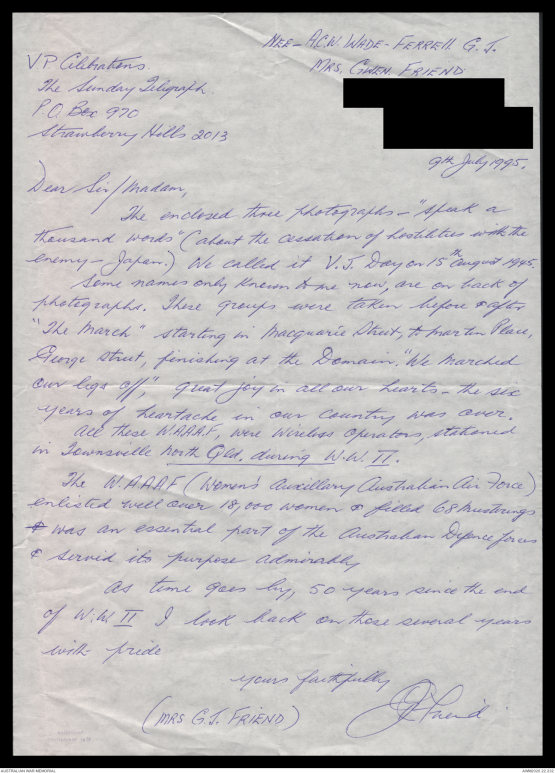 NEE - A.C.W. WADE - FERRELL G. J.
MRS. GWEN. FRIEND
VP Celibrations.
The Sunday Teligraph
P.O. Box 970
Strawberry Hills 2013
9th July 1995.
Dear Sir/Madam,
The enclosed three photographs - "speak a
thousand words" (about the cessation of hostilities with the
enemy - Japan.) We called it V.J. Day on 15th August 1945.
Some names only known to me now, are on back of
photographs. These groups were taken before & after
"The March" starting in Macquarie Street, to Martin Place,
George Street, finishing at the Domain. "We marched
our legs off," great joy in all our hearts - the six
years of heartache in our country was over.
All these W.A.A.A.F. were Wireless Operators, stationed
in Townsville North Qld. during W.W. II.
The W.A.A.A.F (Women's Auxillary Australian Air Force)
enlisted well over 18,000 women & filled 68 Musterings
& was an essential part of the Australian Defence forces
& servid its purpose admirably
As time goes by, 50 years since the end
of W.W. II I look back on those several years
with pride
yours faithfully
(MRS G.J. FRIEND) GJ Friend
AUSTRALIAN WAR MEMORIAL